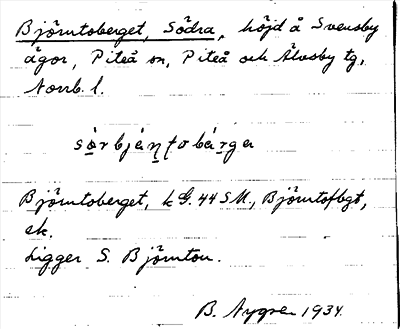 Björntoberget, Södra, höjd å Svensby
ägor, Piteå sn, Piteå och Älvsby tg,
Norrb. l.
sø̀rbjä́ṇṭobä́rge
Björntoberget, k G. 44 SM., Björntofbgt,
ek.
Ligger S. Björnton.
B. Nygren 1934.